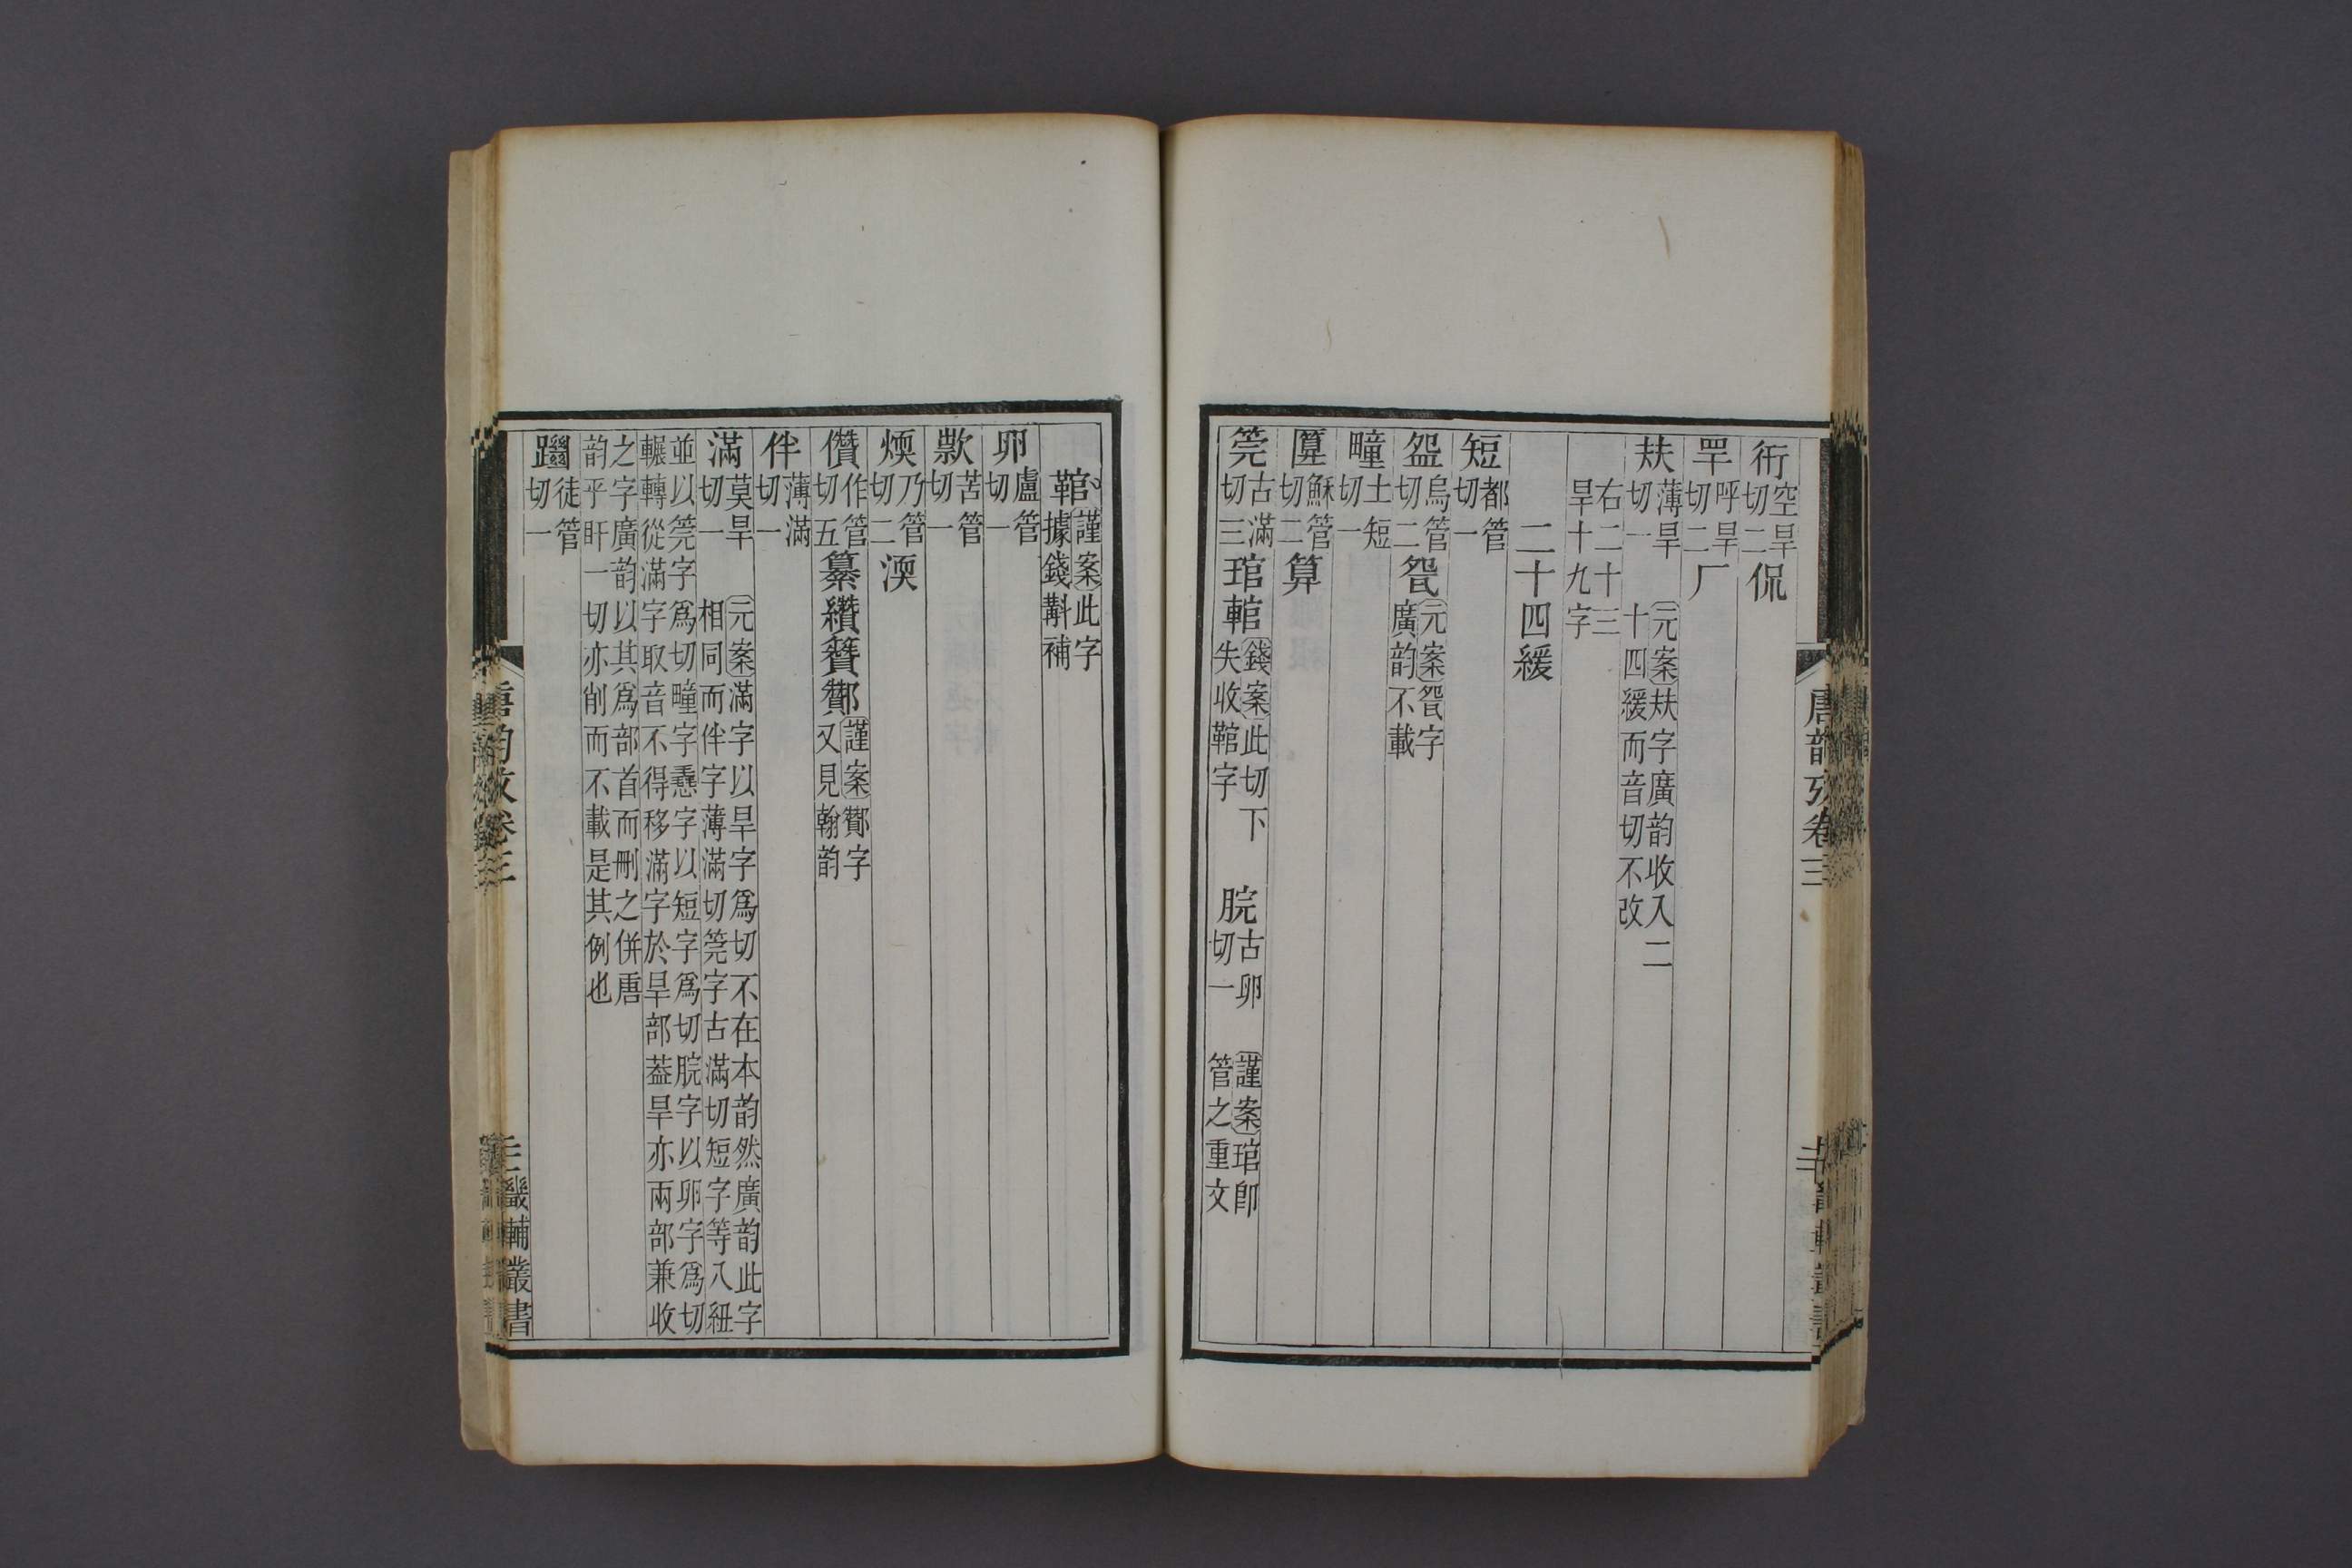 衎空旱切二侃
罕呼旱切二厂
㚘薄旱切一元案㚘字廣韵收入二十四緩而音切不改
右二十三旱十九字
二十四緩
短都管切一
盌烏管切二㼝元案㼝字廣韵不載
疃土短切一
匴穌管切二算
筦古滿切三琯輨錢案此切下失收䩪字脘古卵切一謹案琯卽管之重文
䩪謹案此字據錢斠補
卵盧管切一
款苦管切一
煗乃管切二渜
儧作管切五纂纘籫酇謹案酇字又見翰韵
伴薄滿切一
滿莫旱切一元案滿字以旱字爲切不在本韵然廣韵此字相同而伴字薄滿切筦字古滿切短字等八紐
並以筦字爲切疃字㦁字以短字爲切脘字以卵字爲切輾轉從滿字取音不得移滿字於旱部葢旱亦兩部兼收
之字廣韵以其爲部首而刪之併唐韵乎盰一切亦削而不載是其例也
躖徒管切一
唐韵攷卷三
畿輔叢書